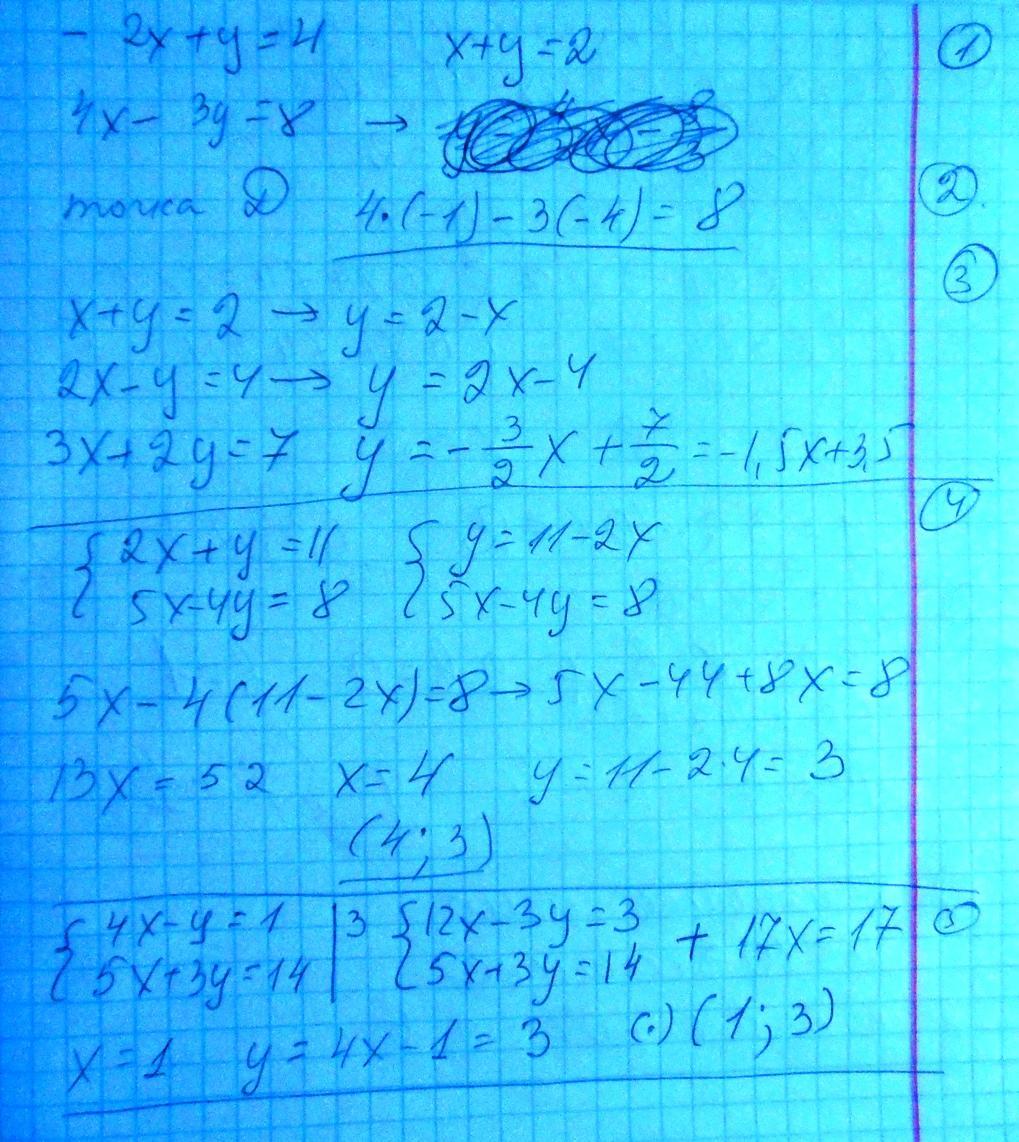 - 2x+y=4 x+y=2 ①
4x-3y=8 →
точка D 4·(-1)-3(-4)=8 ②
③
x+y=2 → y=2-x
2x-y=4 → y=2x-4
3x+2y=7 y=-3/2x+7/2=-1,5x+3,5
④
{2x+y=11 {y=11-2x
5x-4y=8 5x-4y=8
5x-4(11-2x)=8→5x-44+8x=8
13x=52 x=4 y=11-2·4=3
(4;3)
{4x-y=1 |3 {12x-3y=3 + 17x=17 ⑤
5x+3y=14 | 5x+3y=14
x=1 y=4x-1=3 (·)(1;3)